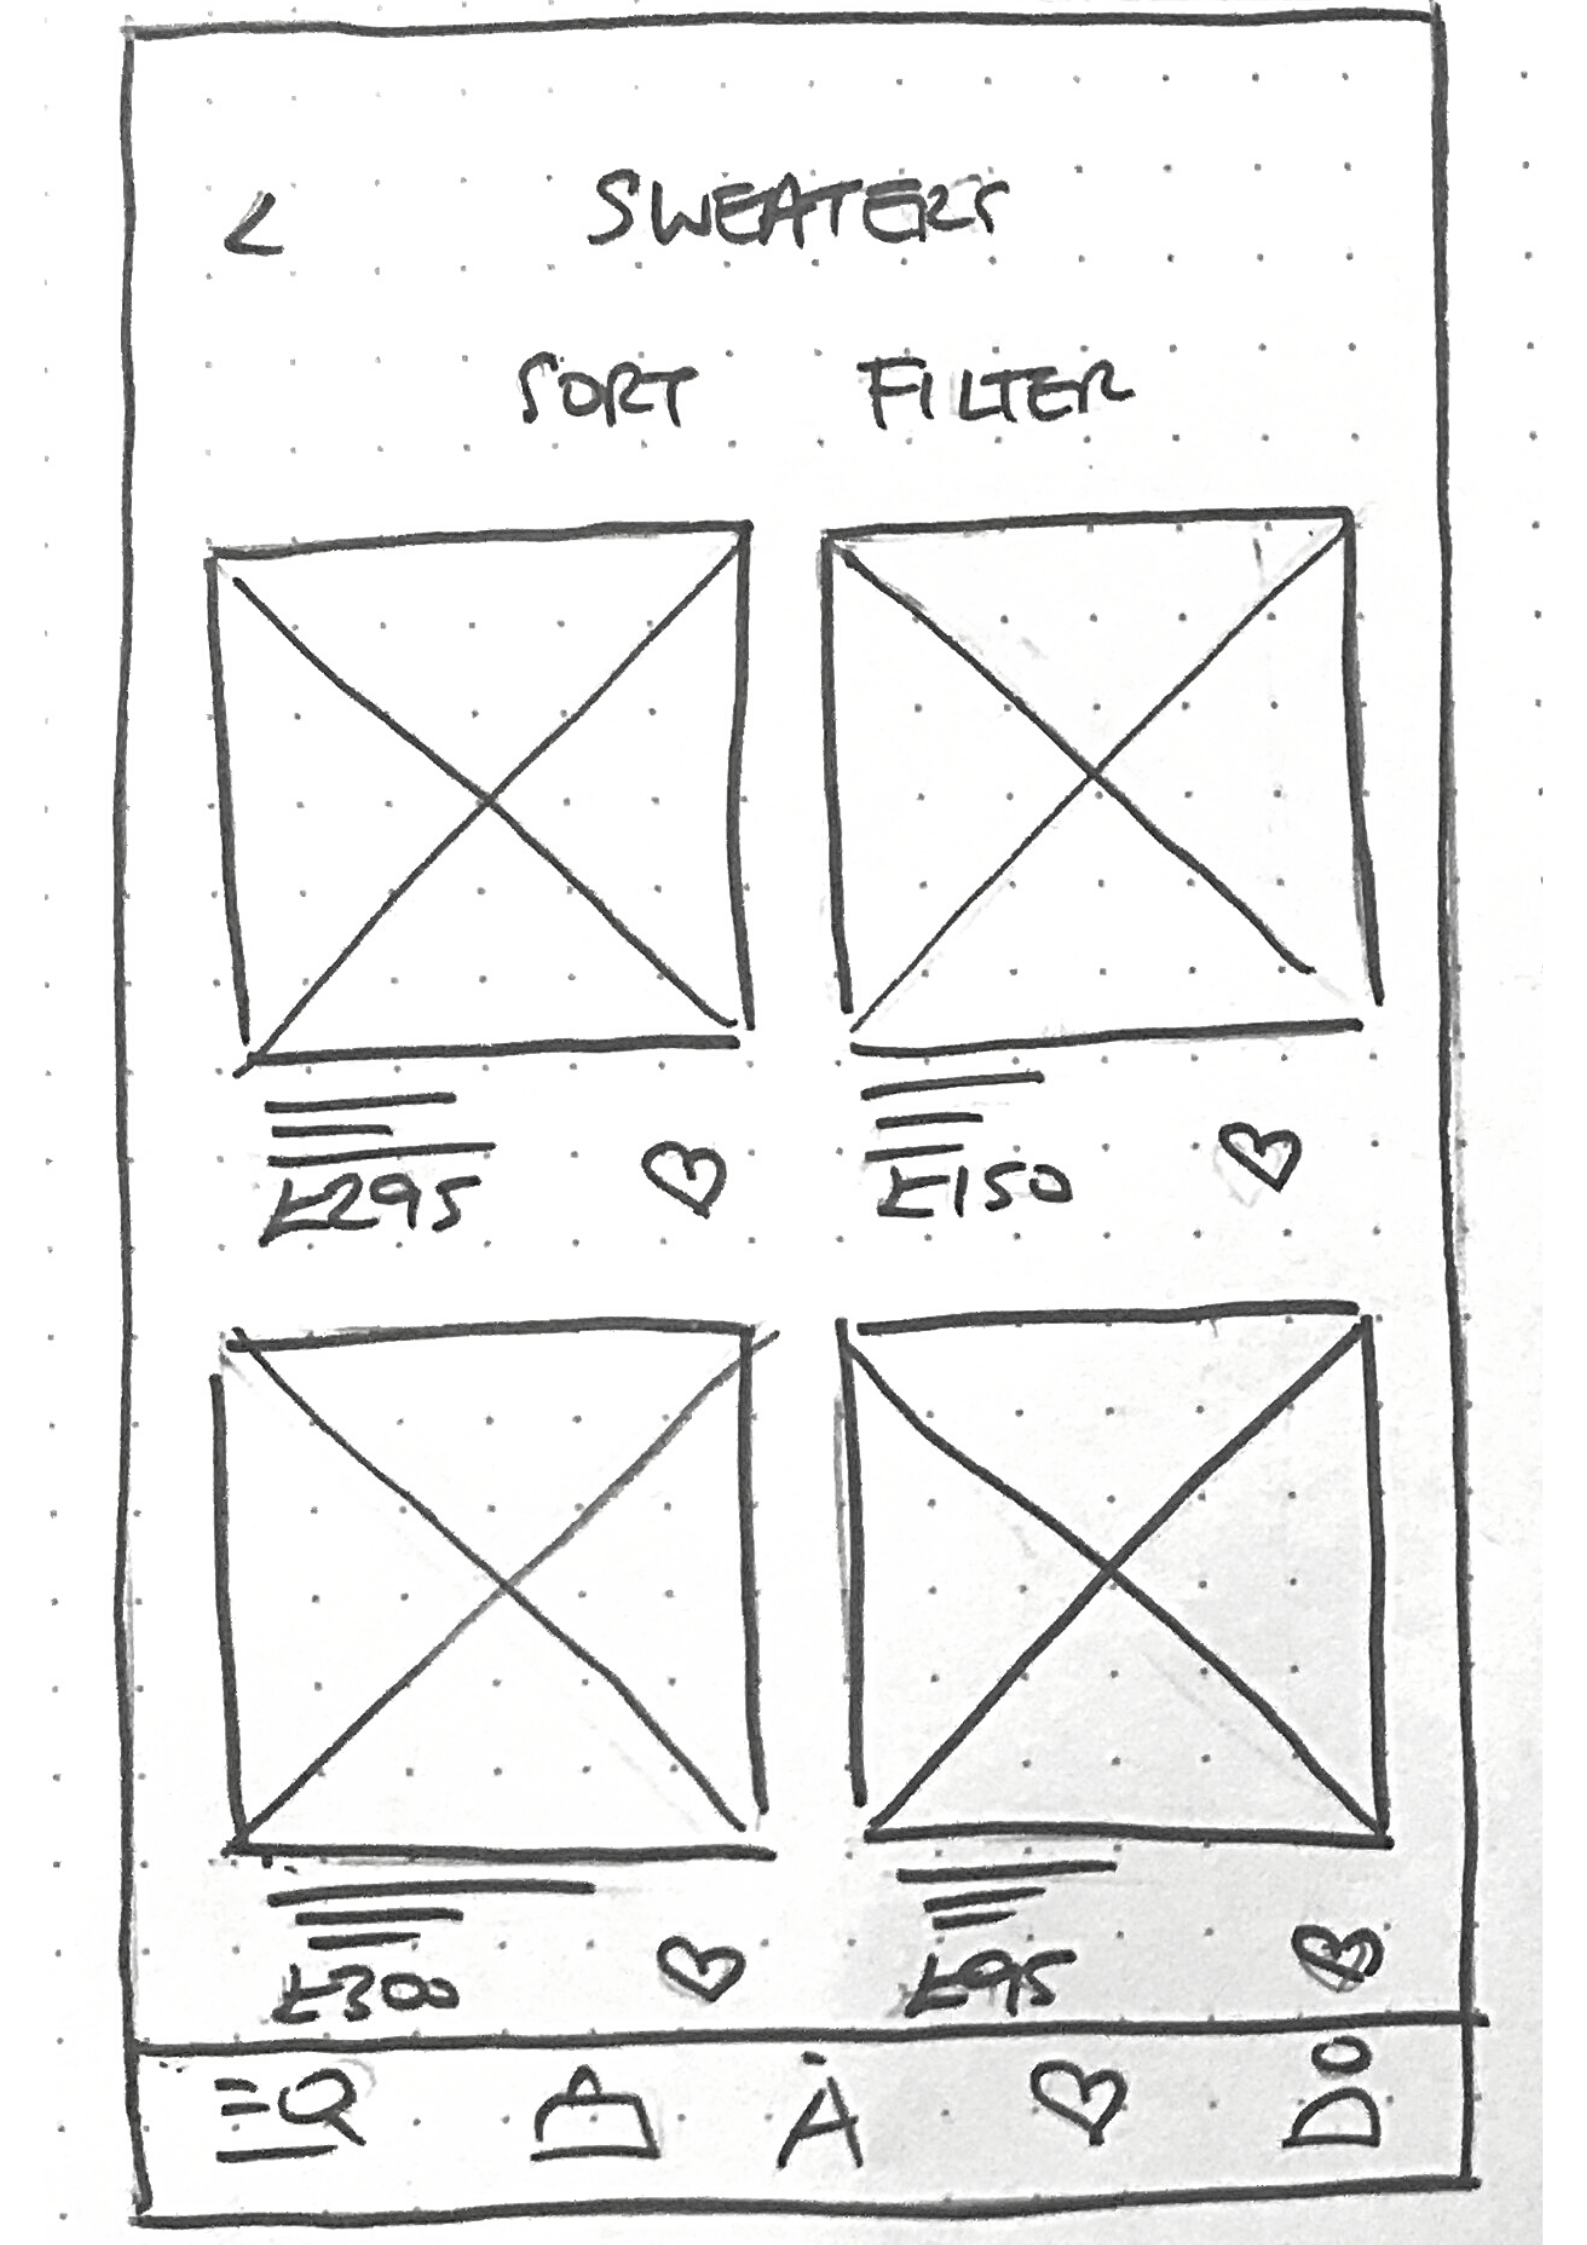 <
SWEATERS
SORT FILTER
£295 £150
£300 £95
A